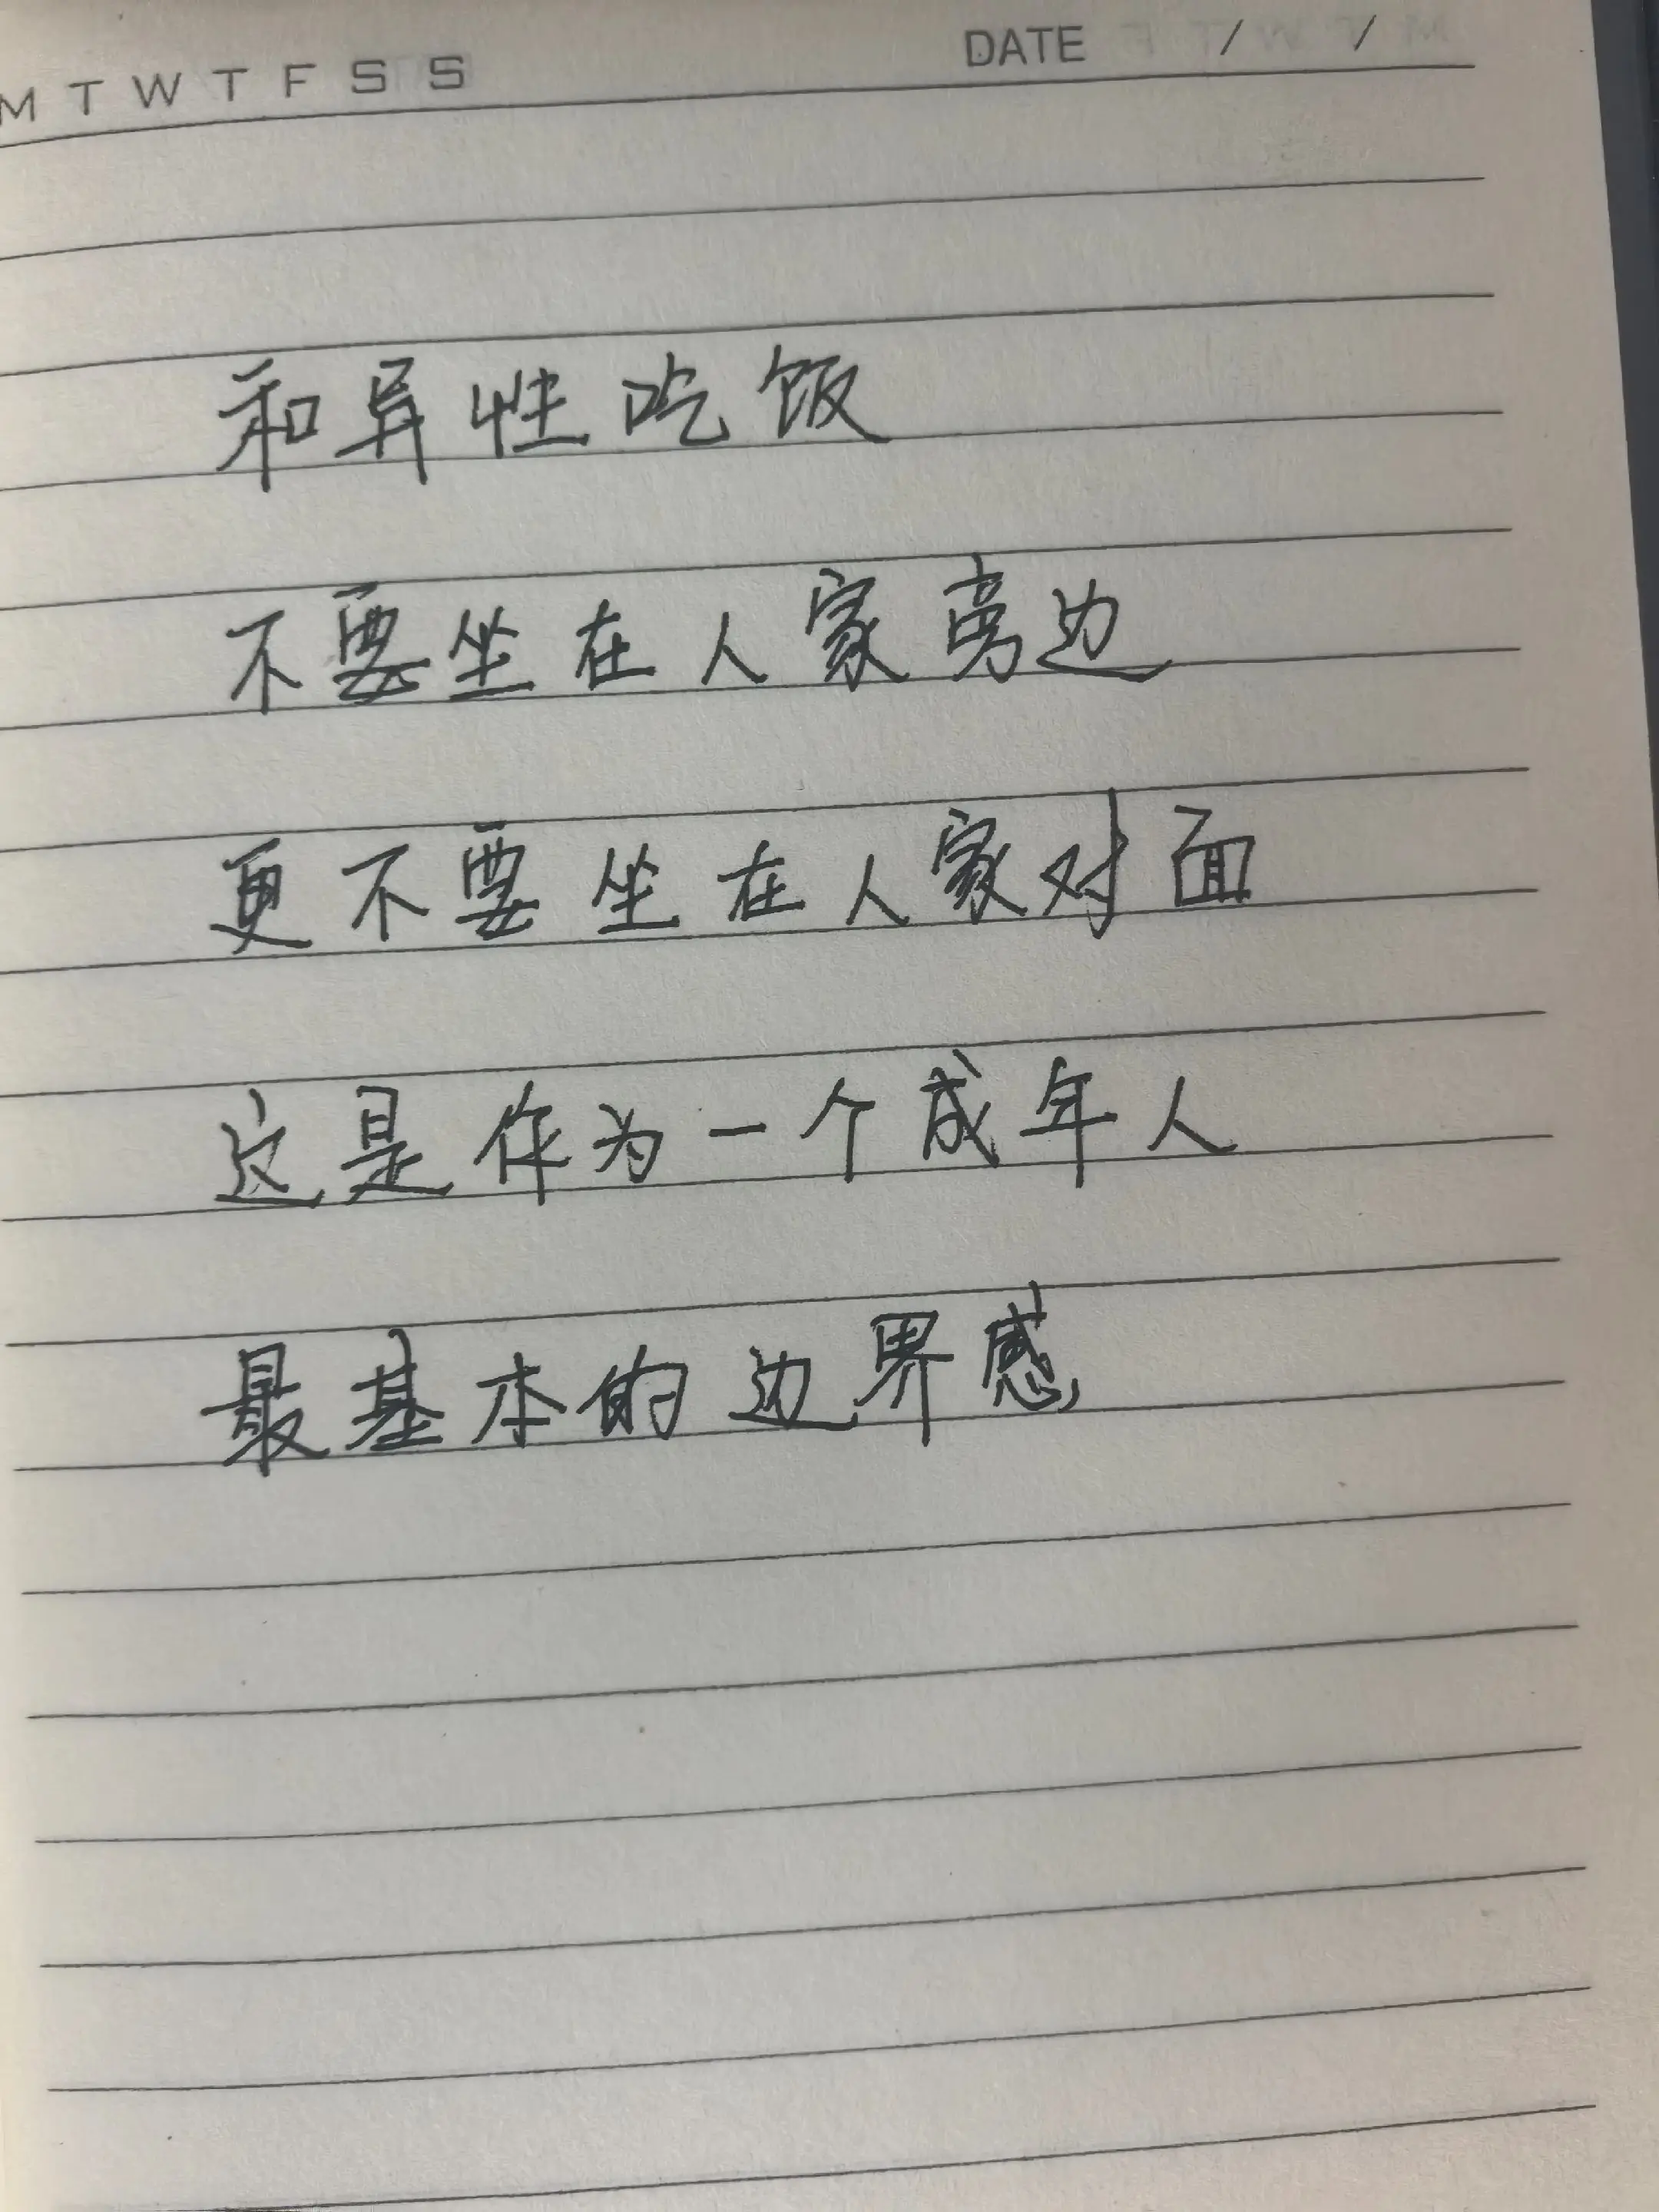 M T W T F S S
DATE / /
和异性吃饭
不要坐在人家旁边
更不要坐在人家对面
这是作为一个成年人
最基本的边界感